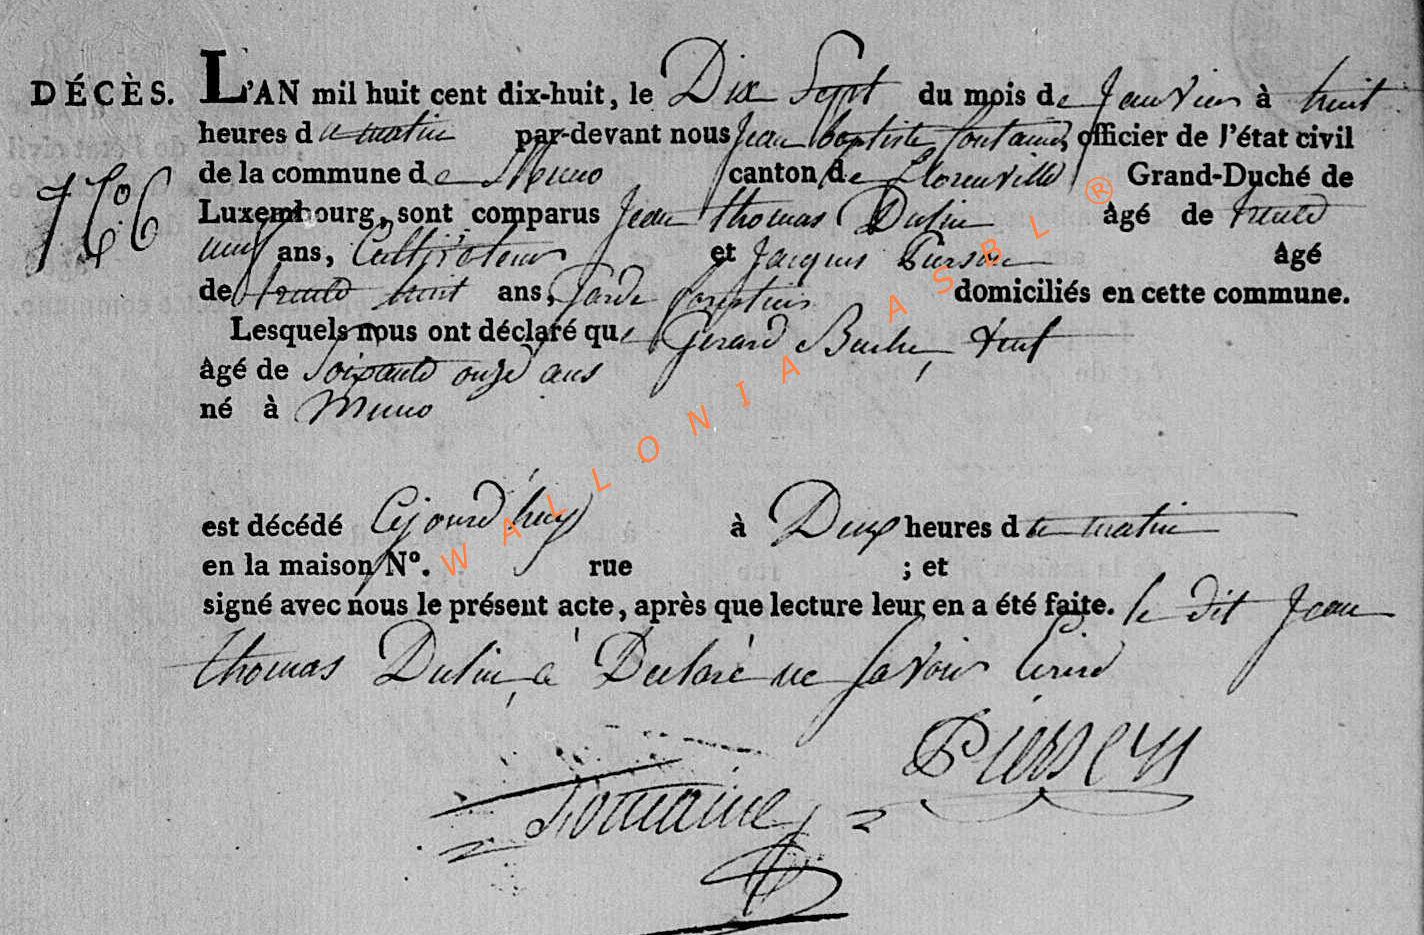 DÉCÈS. L'AN mil huit cent dix-huit, le Dix Sept du mois de Janvier à huit
heures du matin par-devant nous Jean baptiste fontaine, officier de l'état civil
N.º 6
de la commune de Muno canton de florenville Grand-Duché de
Luxembourg, sont comparus Jean thomas Dulin âgé de trente
neuf ans, Cultivateur et Jacques Pierson âgé
de trente huit ans, Garde forestier domiciliés en cette commune.
Lesquels nous ont déclaré que Gerard veuf
âgé de Soixante onze ans
né à Muno
est décédé Cejourd'huy à Deux heures du matin
en la maison Nº. rue ; et
signé avec nous le présent acte, après que lecture leur en a été faite. le dit Jean
thomas Dulin a Declaré ne Savoir
Fontaine
WALLONIA ASBL ®